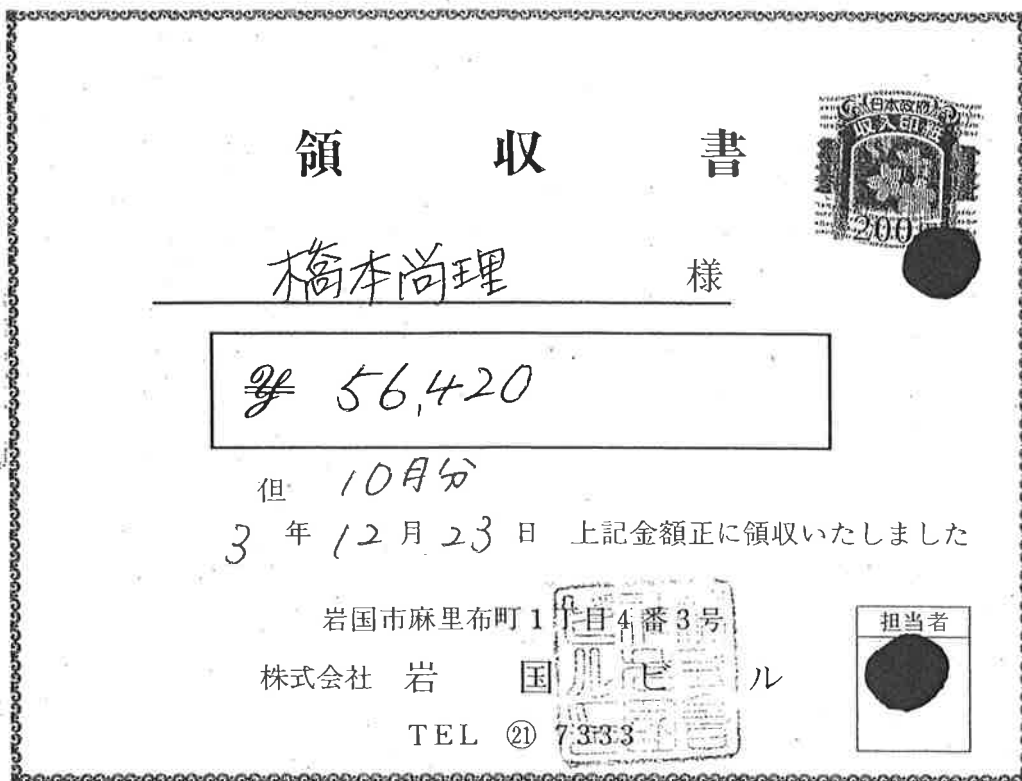 日本政府
収入印紙
200円
領収書
橋本尚理 様
¥ 56,420
但 10月分
3年12月23日 上記金額正に領収いたしました
岩国市麻里布町1丁目4番3号
株式会社 岩国ビル
TEL ㉑ 7333
担当者